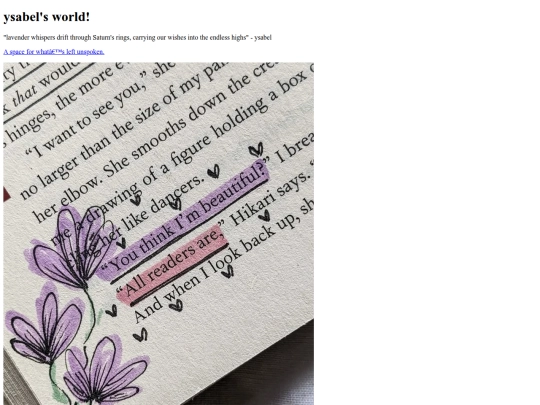 ysabel's world!
"lavender whispers drift through Saturn's rings, carrying our wishes into the endless highs" - ysabel
A space for whatâ€™s left unspoken.
that would
hinges, the more
"I want to see you," she
no larger than the size of my
her elbow. She smooths down the
a drawing of a figure holding a box
her like dancers.
"You think I'm beautiful?" I
"All readers are," Hikari says.
And when I look back up,